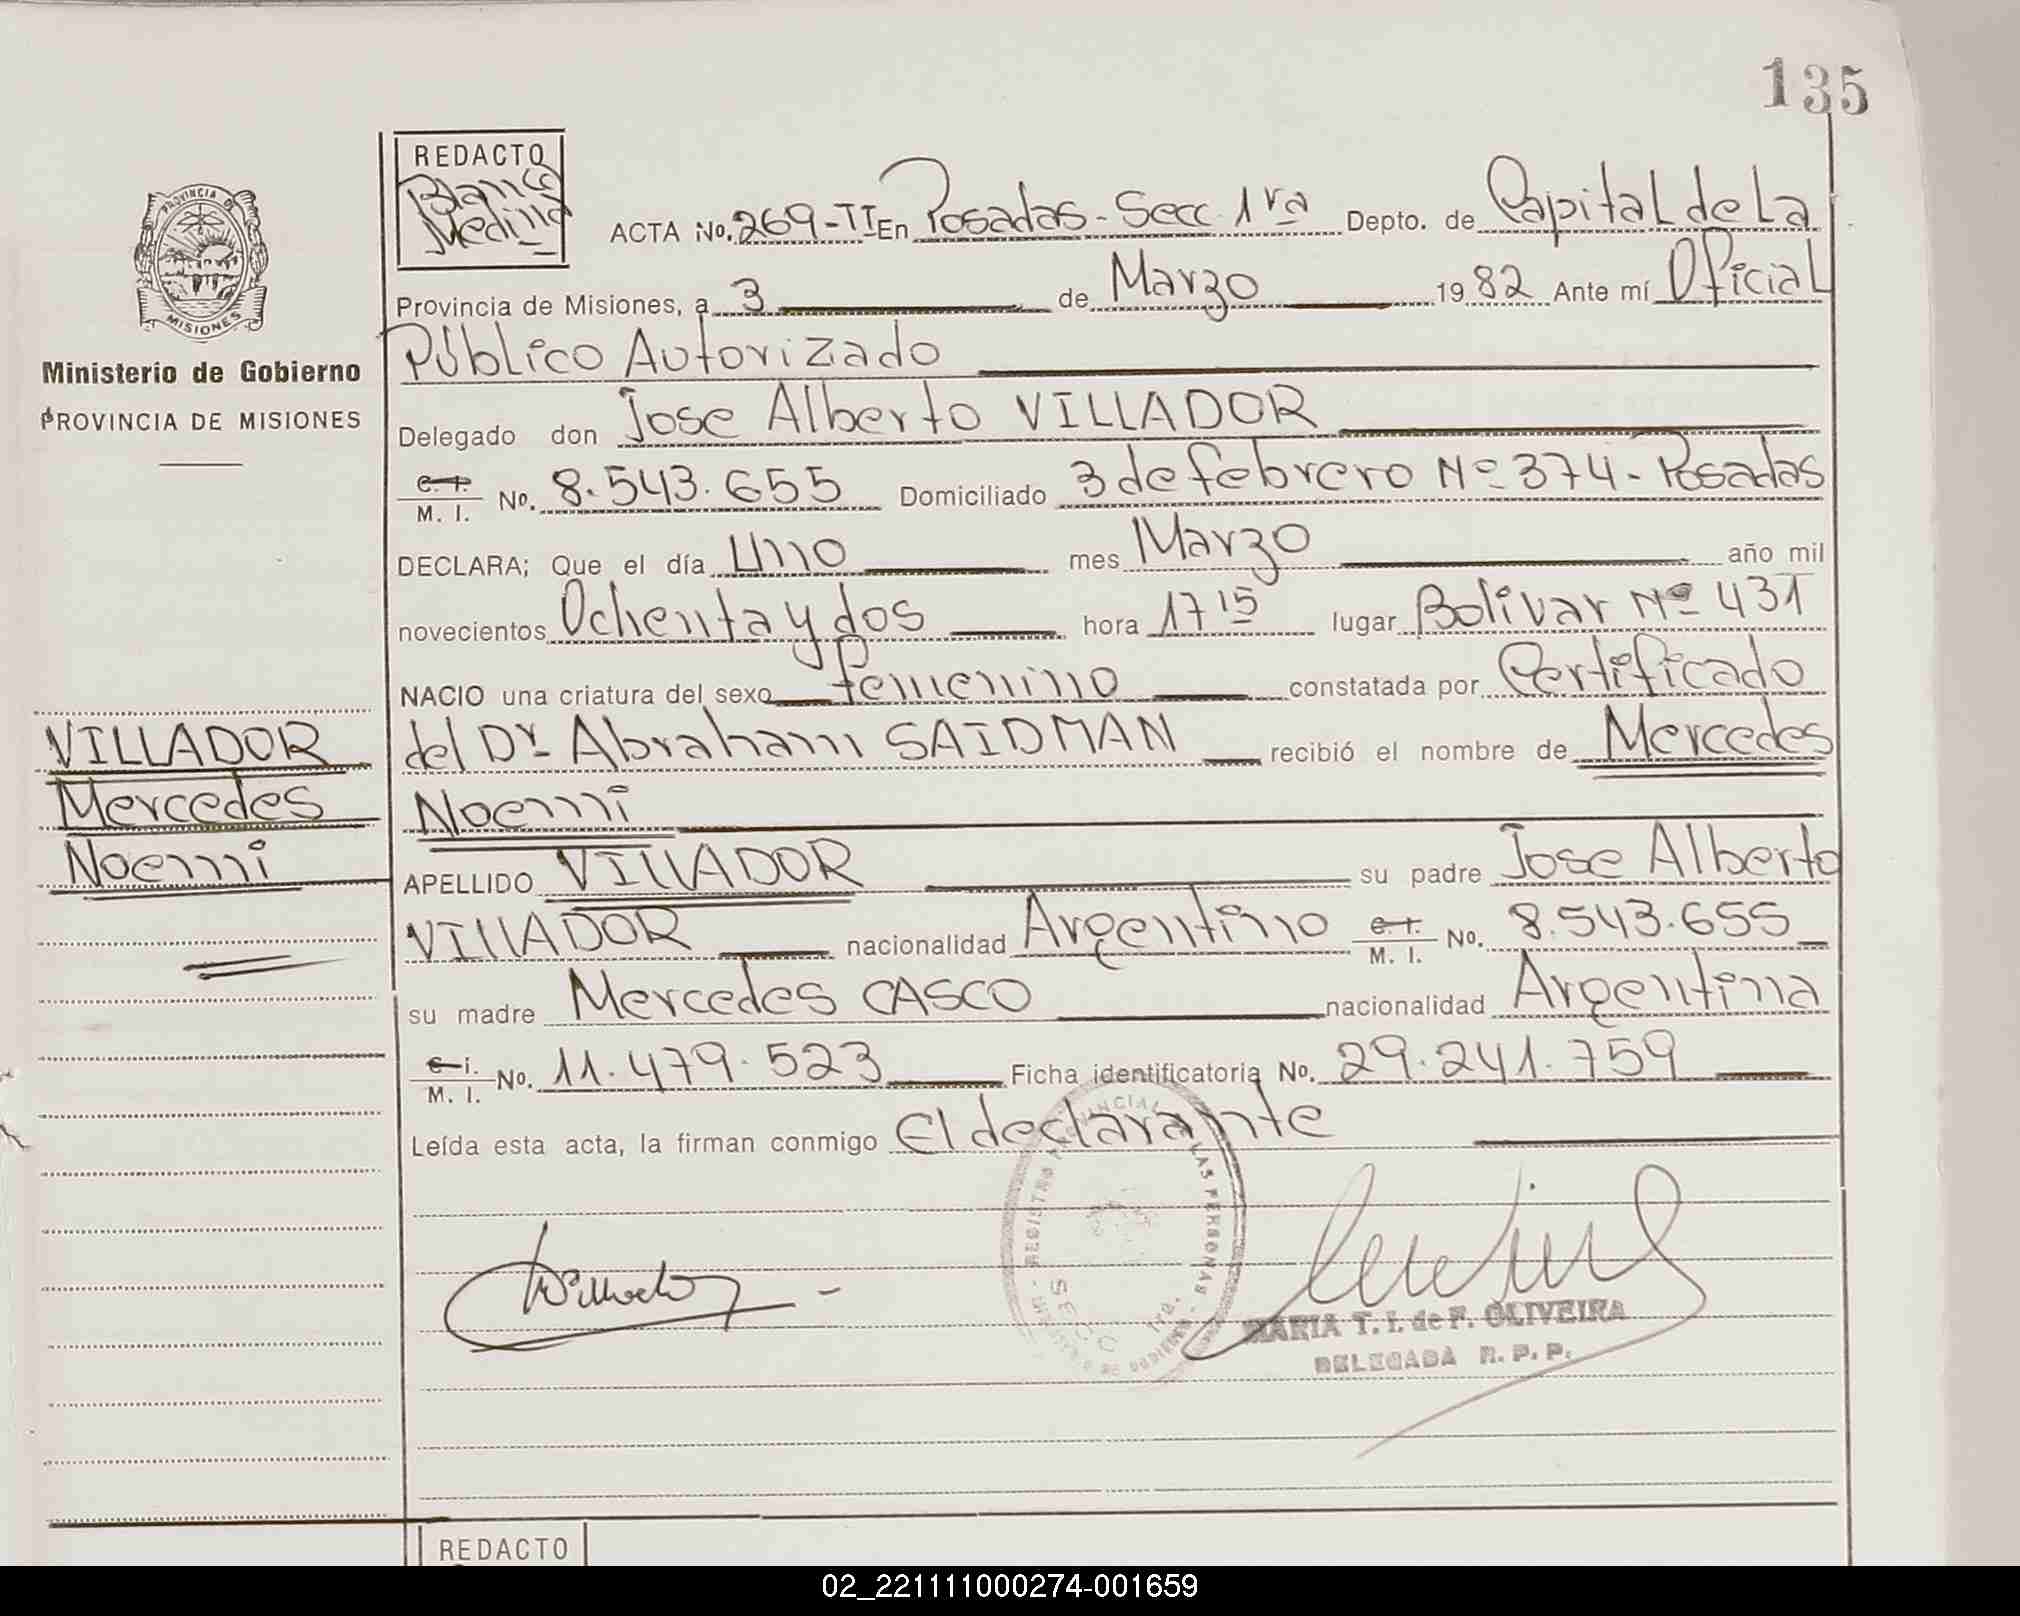 135
REDACTO
Blanca
Medina
PROVINCIA DE
MISIONES
Ministerio de Gobierno
PROVINCIA DE MISIONES
ACTA No. 269-II En Posadas - Secc. 1ra Depto. de Capital de La
Provincia de Misiones, a 3 de Marzo 1982 Ante mí Oficial
Público Autorizado
Delegado don Jose Alberto VILLADOR
C. I. M. I. No. 8.543.655 Domiciliado 3 de febrero Nº 374 - Posadas
DECLARA; Que el día Uno mes Marzo año mil
novecientos Ochenta y dos hora 17 15 lugar Bolivar Nº 431
NACIO una criatura del sexo femenino constatada por Certificado
del Dr. Abraham SAIDMAN recibió el nombre de Mercedes
Noemi
VILLADOR
Mercedes
Noemi
APELLIDO VILLADOR su padre Jose Alberto
VILLADOR nacionalidad Argentino C. I. M. I. No. 8.543.655
su madre Mercedes CASCO nacionalidad Argentina
C. I. M. I. No. 11.479.523 Ficha identificatoria No. 29.241.759
Leída esta acta, la firman conmigo El declarante
REGISTRO PROVINCIAL LAS PERSONAS
MARIA T. I. de F. OLIVEIRA
DELEGADA R. P. P.
REDACTO
02_221111000274-001659